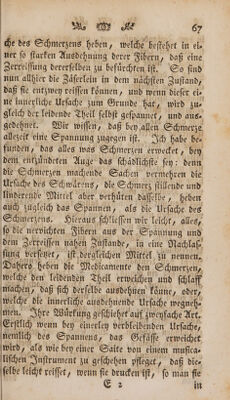 67
che des Schmerzens heben, welche bestehet in ei-
ner so starken Ausdehnung derer Fibern, daß eine
Zerreissung dererselben zu befürchten ist. So sind
nun allhier die Zäserlein in dem nächsten Zustand,
daß sie entzwey reissen können, und wenn dieser ei-
ne innerliche Ursache zum Grunde hat, wird zu-
gleich der leidende Theil selbst gespannet, und aus-
gedehnet. Wir wissen, daß bey allen Schmerze
allezeit eine Spannung zugegen ist. Ich habe be-
funden, das alles was Schmerzen erwecket, bey
dem entzündeten Auge das schädlichste sey: denn
die Schmerzen machende Sachen vermehren die
Ursache des Schwärens, die Schmerz stillende und
lindernde Mittel aber verhüten dasselbe, heben
auch zugleich das Spannen, als die Ursache des
Schmerzens. Hieraus schliessen wir leicht, alles,
so die nervichten Fibern aus der Spannung und
dem Zerreissen nahen Zustande, in eine Nachlas-
sung versetzet, ist dergleichen Mittel zu nennen.
Dahero heben die Medicamente den Schmerzen,
welche den leidenden Theil erweichen und schlaff
machen, daß sich derselbe ausdehnen könne, oder,
welche die innerliche ausdehnende Ursache wegneh-
men. Ihre Würkung geschiehet auf zweyfache Art.
Erstlich wenn bey einerley verbleibenden Ursach,
nemlich des Spannens, das Gefässe erweichet
wird, als wie bey einer Saite von einem musica-
lischen Instrument zu geschehen pfleget, daß die-
selbe leicht reisset, wenn sie drucken ist, so man sie
E 2
in